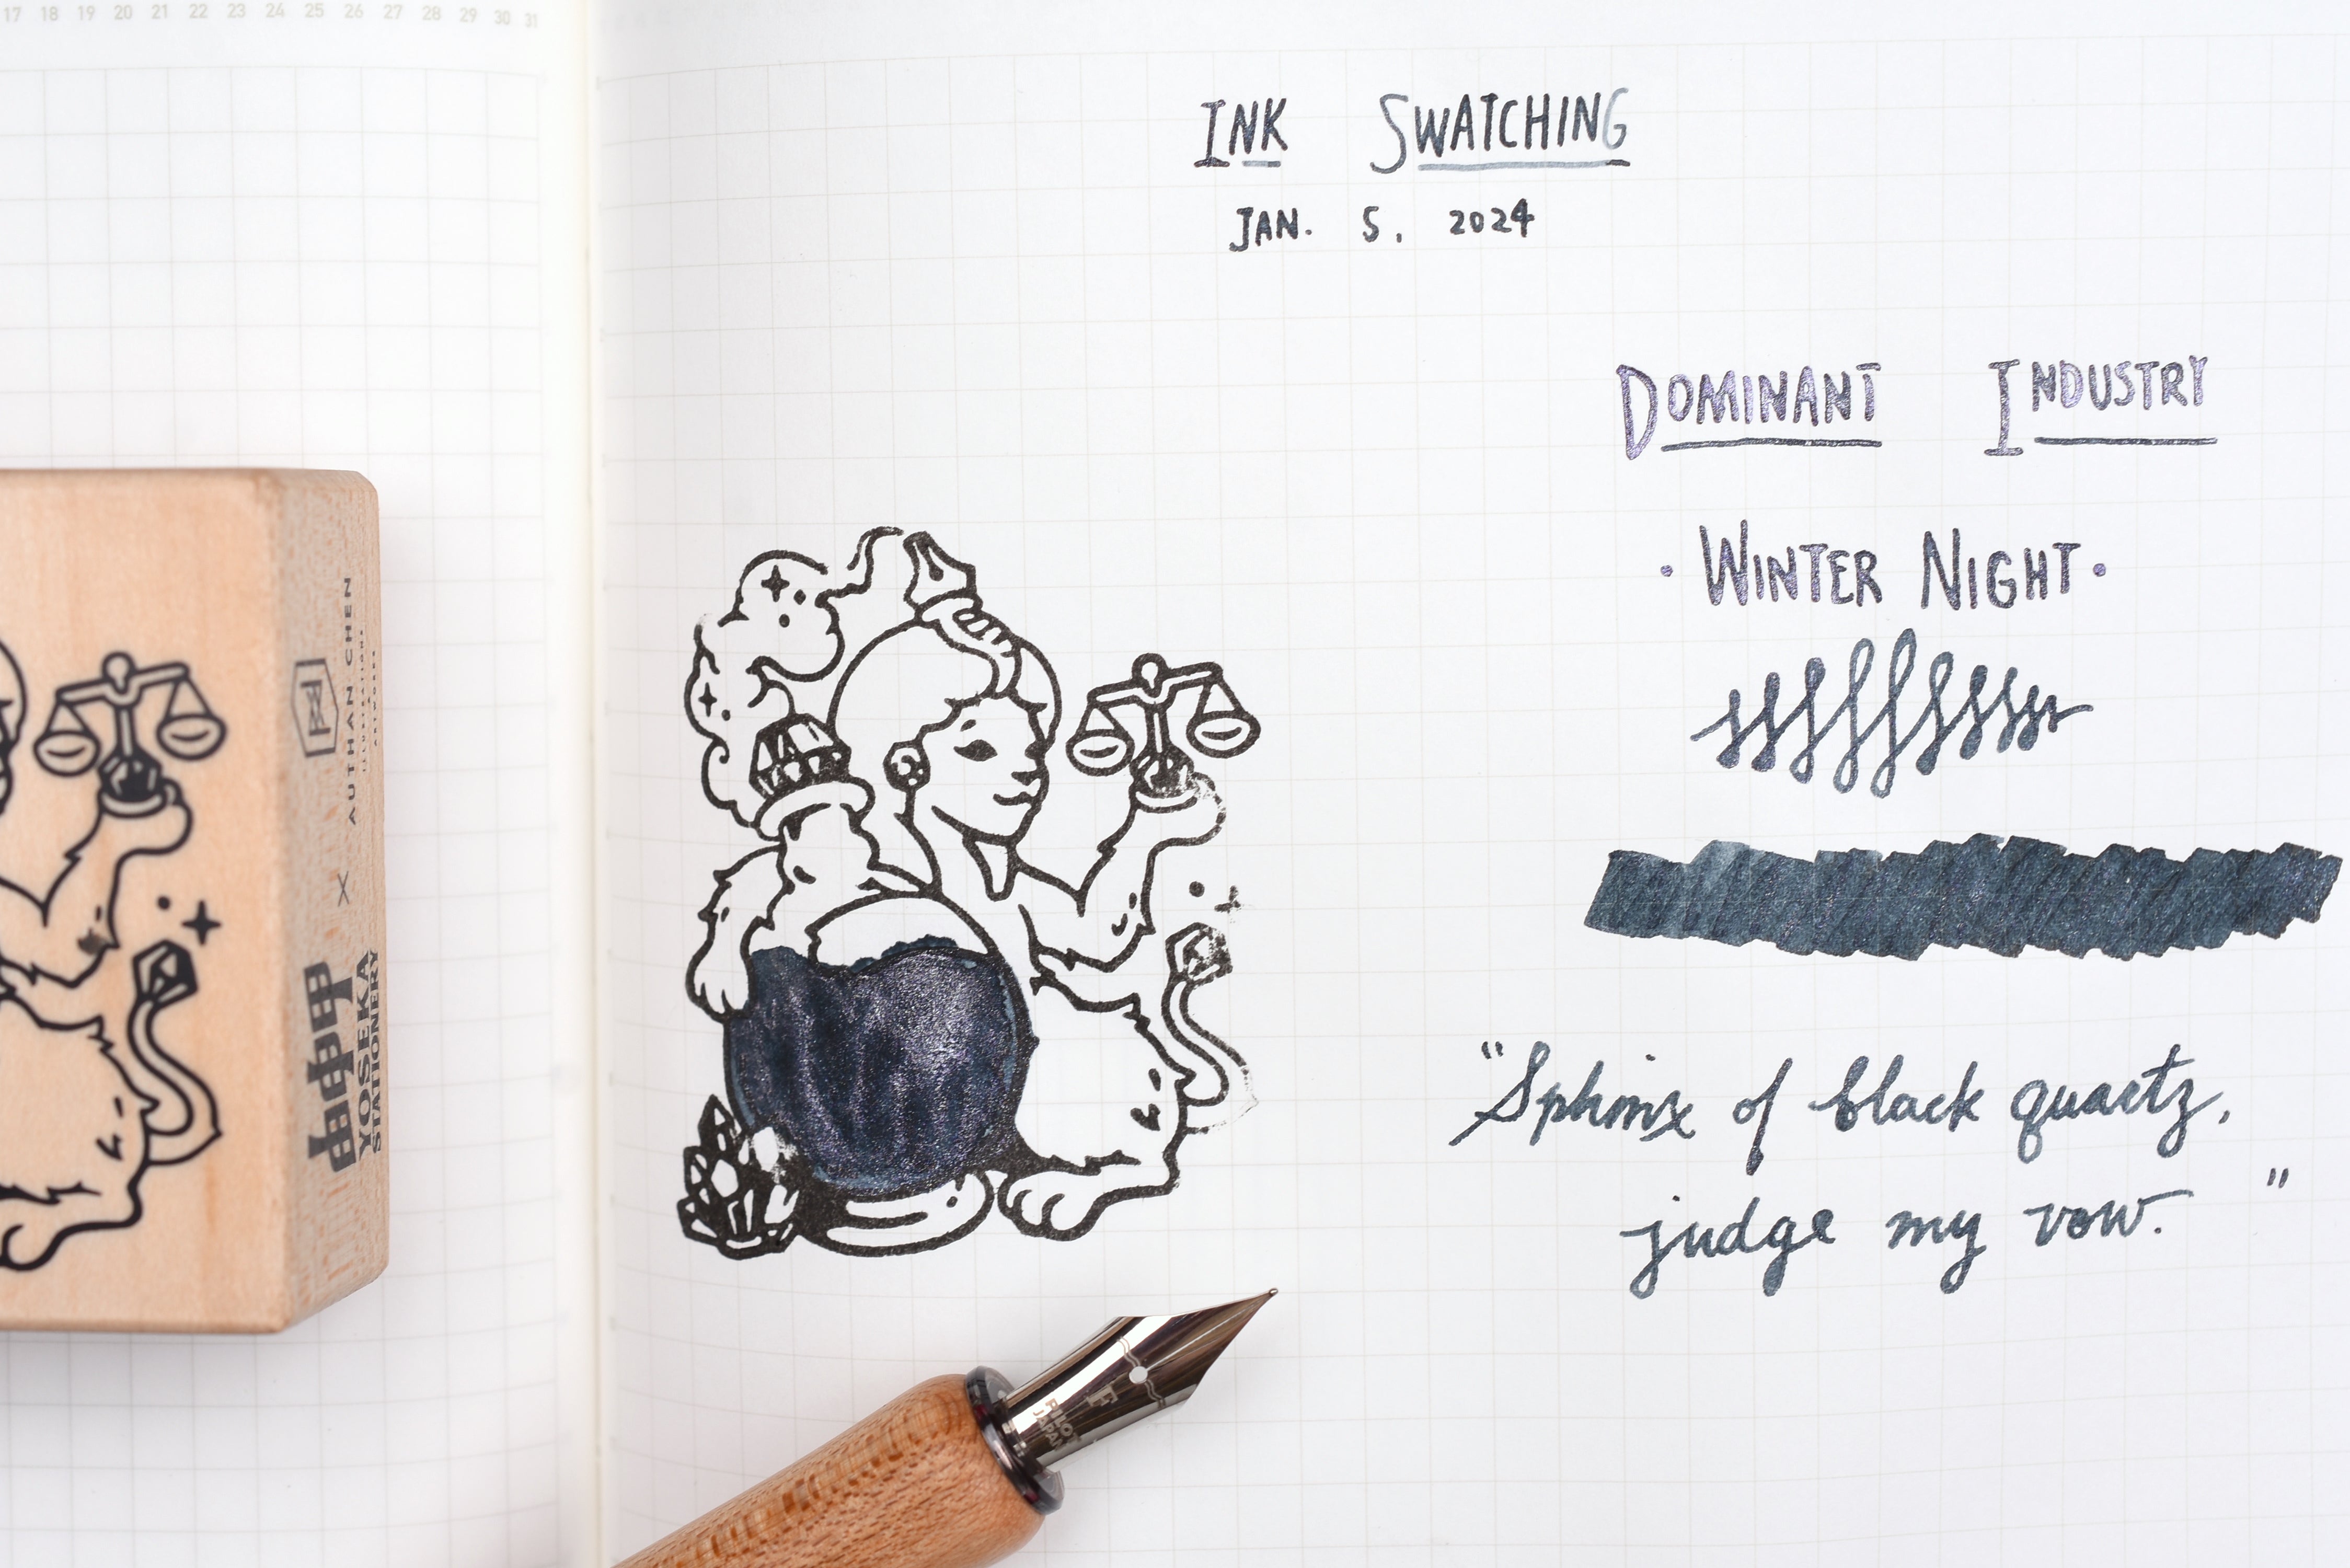 17 18 19 20 21 22 23 24 25 26 27 28 29 30 31
INK SWATCHING
JAN. 5. 2024
DOMINANT INDUSTRY
· WINTER NIGHT ·
"Sphinx of black quartz,
judge my vow. "
AUTHAN CHEN
ILLUSTRATIONS
ARTWORK
×
YOSEKA
STATIONERY
F
PILOT
JAPAN